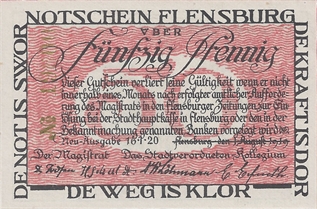 NOTSCHEIN FLENSBURG
DE NOT IS SWOR
DE KRAFT IS DOR
DE WEG IS KLOR
ÜBER
Fünfzig Pfennig
Dieser Gutschein verliert seine Gültigkeit wenn er nicht
innerhalb eines Monats nach erfolgter amtlicher Aufforde-
rung des Magistrats in den Flensburger Zeitungen zur Ein-
lösung bei der Stadthauptkasse in Flensburg oder den in der
Bekanntmachung genannten Banken vorgelegt wird
Neu-Ausgabe 16·1·20 Flensburg den 1 August 1919
Der Magistrat Das Stadtverordneten-Kollegium